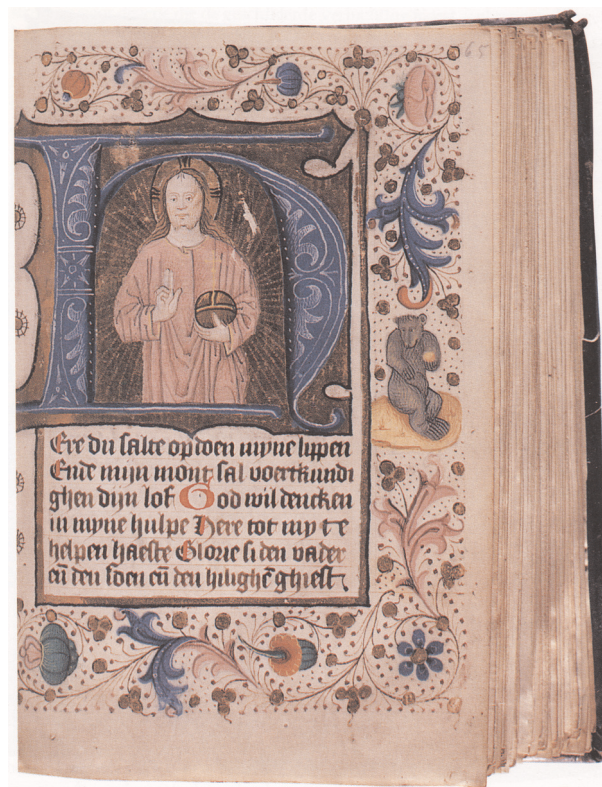 65
H
Ere du salte opdoen myne lippen
Ende mijn mont sal voertkundi
ghen dijn lof God wil dencken
in myne hulpe Here tot my te
helpen haeste Glorie si den vader
eñ den soen eñ den hilighẽ ghiest